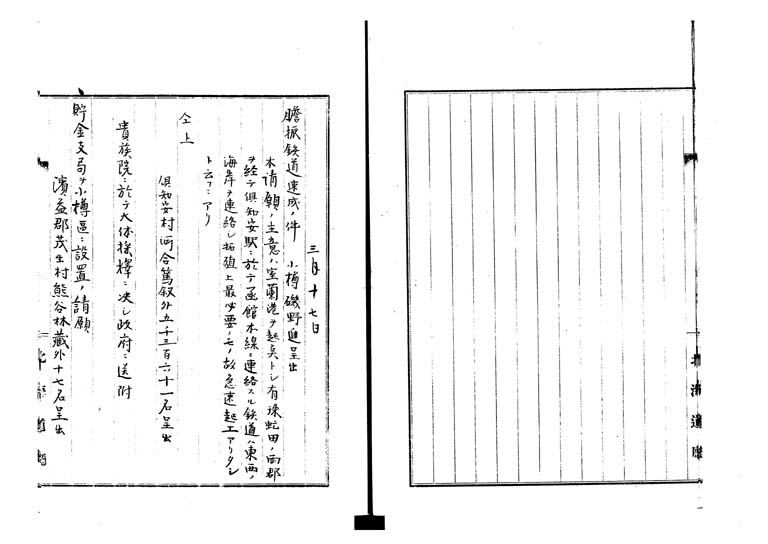 三月十七日
膽振鉄道速成ノ件 小樽磯野進呈出
本請願ノ主意ハ室蘭港ヲ起点トシ有珠虻田ノ両郡
ヲ経テ倶知安駅ニ於テ函館本線ニ連絡スル鉄道ハ東西ノ
海岸ヲ連絡シ拓殖上最必要ノモノ故急速起工アリタシ
ト云フニアリ
仝上
倶知安村河合篤叙外五千三百六十一名呈出
貴族院ニ於テ大体採択ニ決シ政府ニ送附
貯金支局ヲ小樽区ニ設置ノ請願
濱益郡茂生村熊谷林藏外十七名呈出
北海道廳
北海道廳